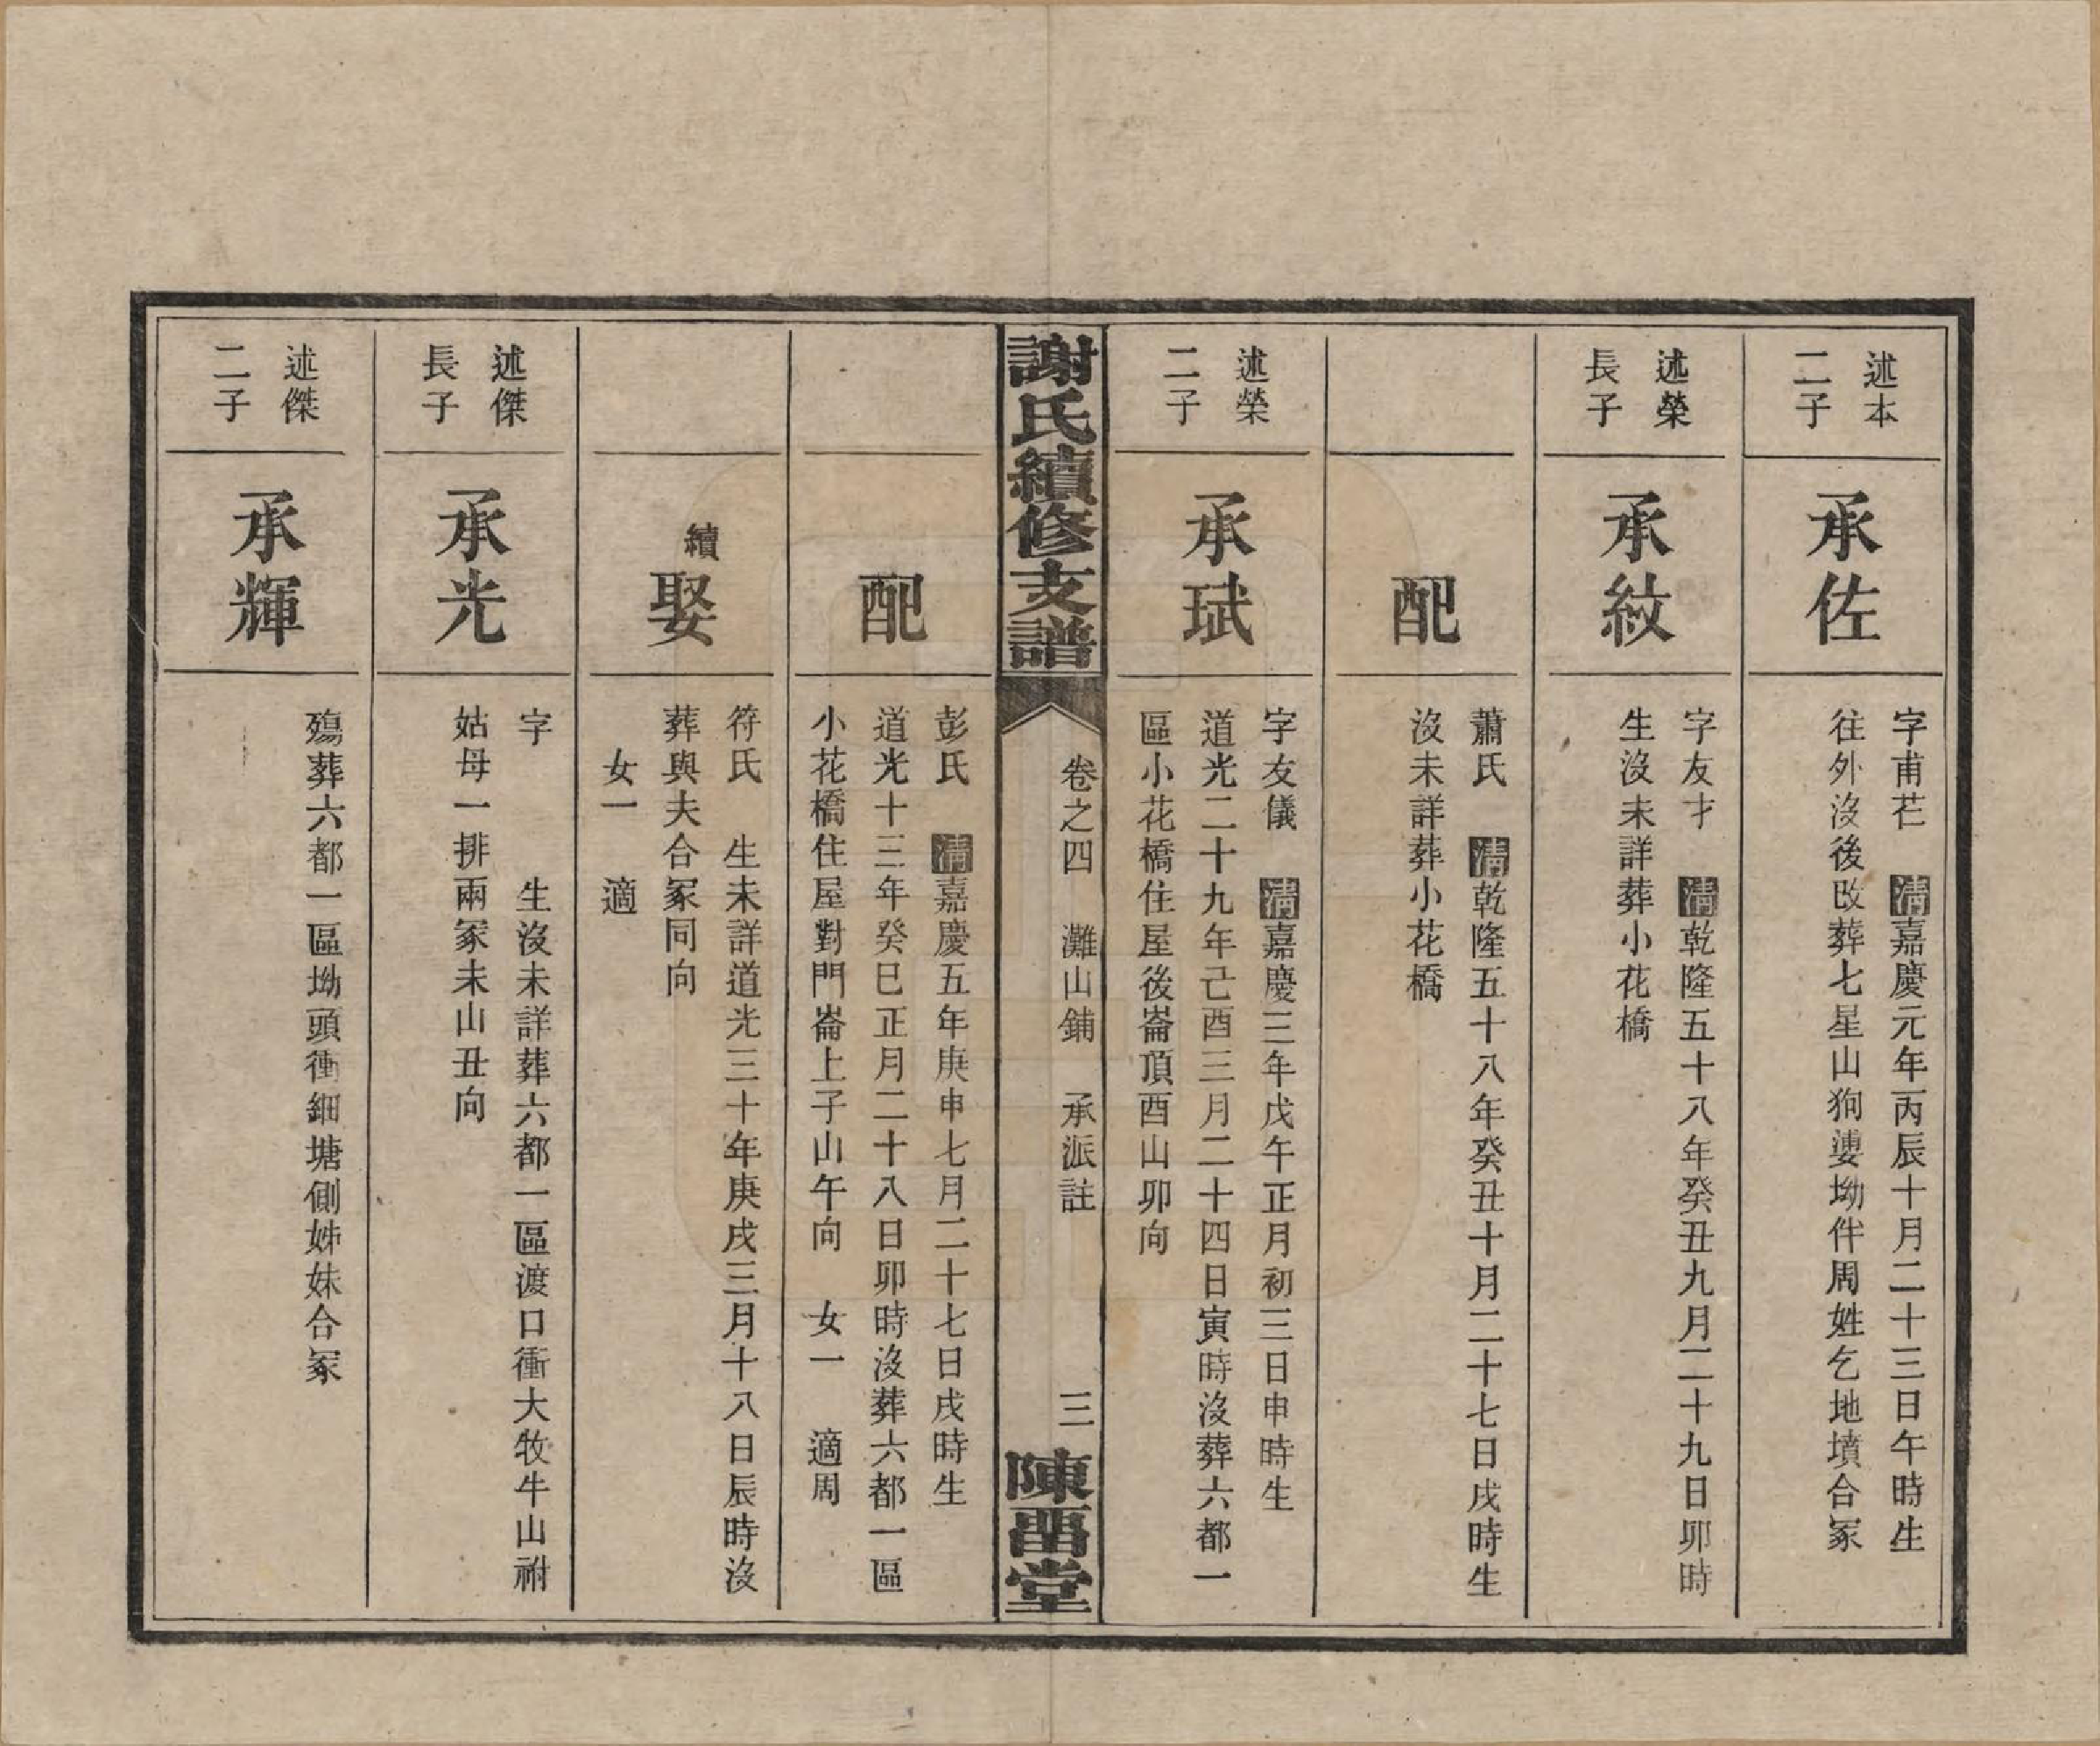 述本
二子
承佐
字甫芒　清嘉慶元年丙辰十月二十三日午時生
往外沒後改葬七星山狗婆坳伴周姓乞地墳合冢
述榮
長子
承紋
字友才　清乾隆五十八年癸丑九月二十九日卯時
生沒未詳葬小花橋
配
蕭氏　清乾隆五十八年癸丑十月二十七日戌時生
沒未詳葬小花橋
述榮
二子
承珷
字友儀　清嘉慶三年戊午正月初三日申時生
道光二十九年己酉三月二十四日寅時沒葬六都一
區小花橋住屋後崙頂酉山卯向
謝氏續修支譜
卷之四　灘山鋪　承派註　三
陳留堂
配
彭氏　清嘉慶五年庚申七月二十七日戌時生
道光十三年癸巳正月二十八日卯時沒葬六都一區
小花橋住屋對門崙上子山午向　女一　適周
續
娶
符氏　生未詳道光三十年庚戌三月十八日辰時沒
葬與夫合冢同向
女一　適
述傑
長子
承光
字　　生沒未詳葬六都一區渡口衝大牧牛山祔
姑母一排兩冢未山丑向
述傑
二子
承輝
殤葬六都一區坳頭衝細塘側姊妹合冢